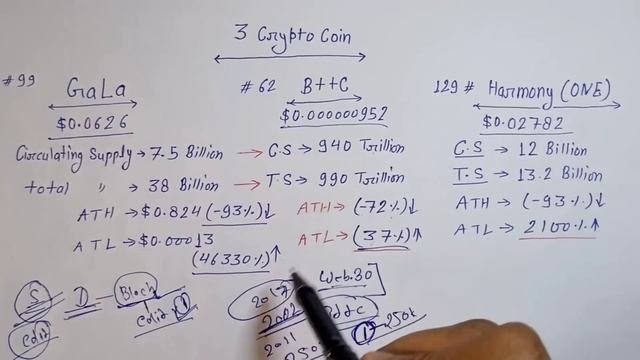 3 Crypto Coin
#99 GaLa
$0.0626
Circulating Supply → 7.5 Billion
total " → 38 Billion
ATH → $0.824 (-93%)↓
ATL → $0.00013
(46330%)↑
#62 BttC
$0.000000952
→ C.S → 940 Trillion
→ T.S → 990 Trillion
ATH → (-72%)↓
ATL → (37%)↑
129# Harmony (ONE)
$0.02782
C.S → 12 Billion
T.S → 13.2 Billion
ATH → (-93%)↓
ATL → 2100%↑
S D Block
Edit Edit 1
2017 Web.30
2011
1 250k